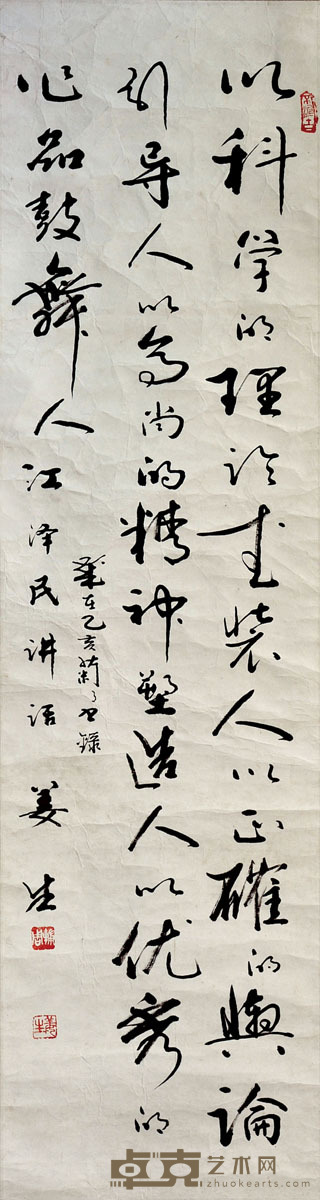 以科学的理论武装人以正確的輿論
引导人以高尚的精神塑造人以优秀的
作品鼓舞人江泽民讲语姜生
歲在乙亥
录
卓克艺术网
zhuokearts.com